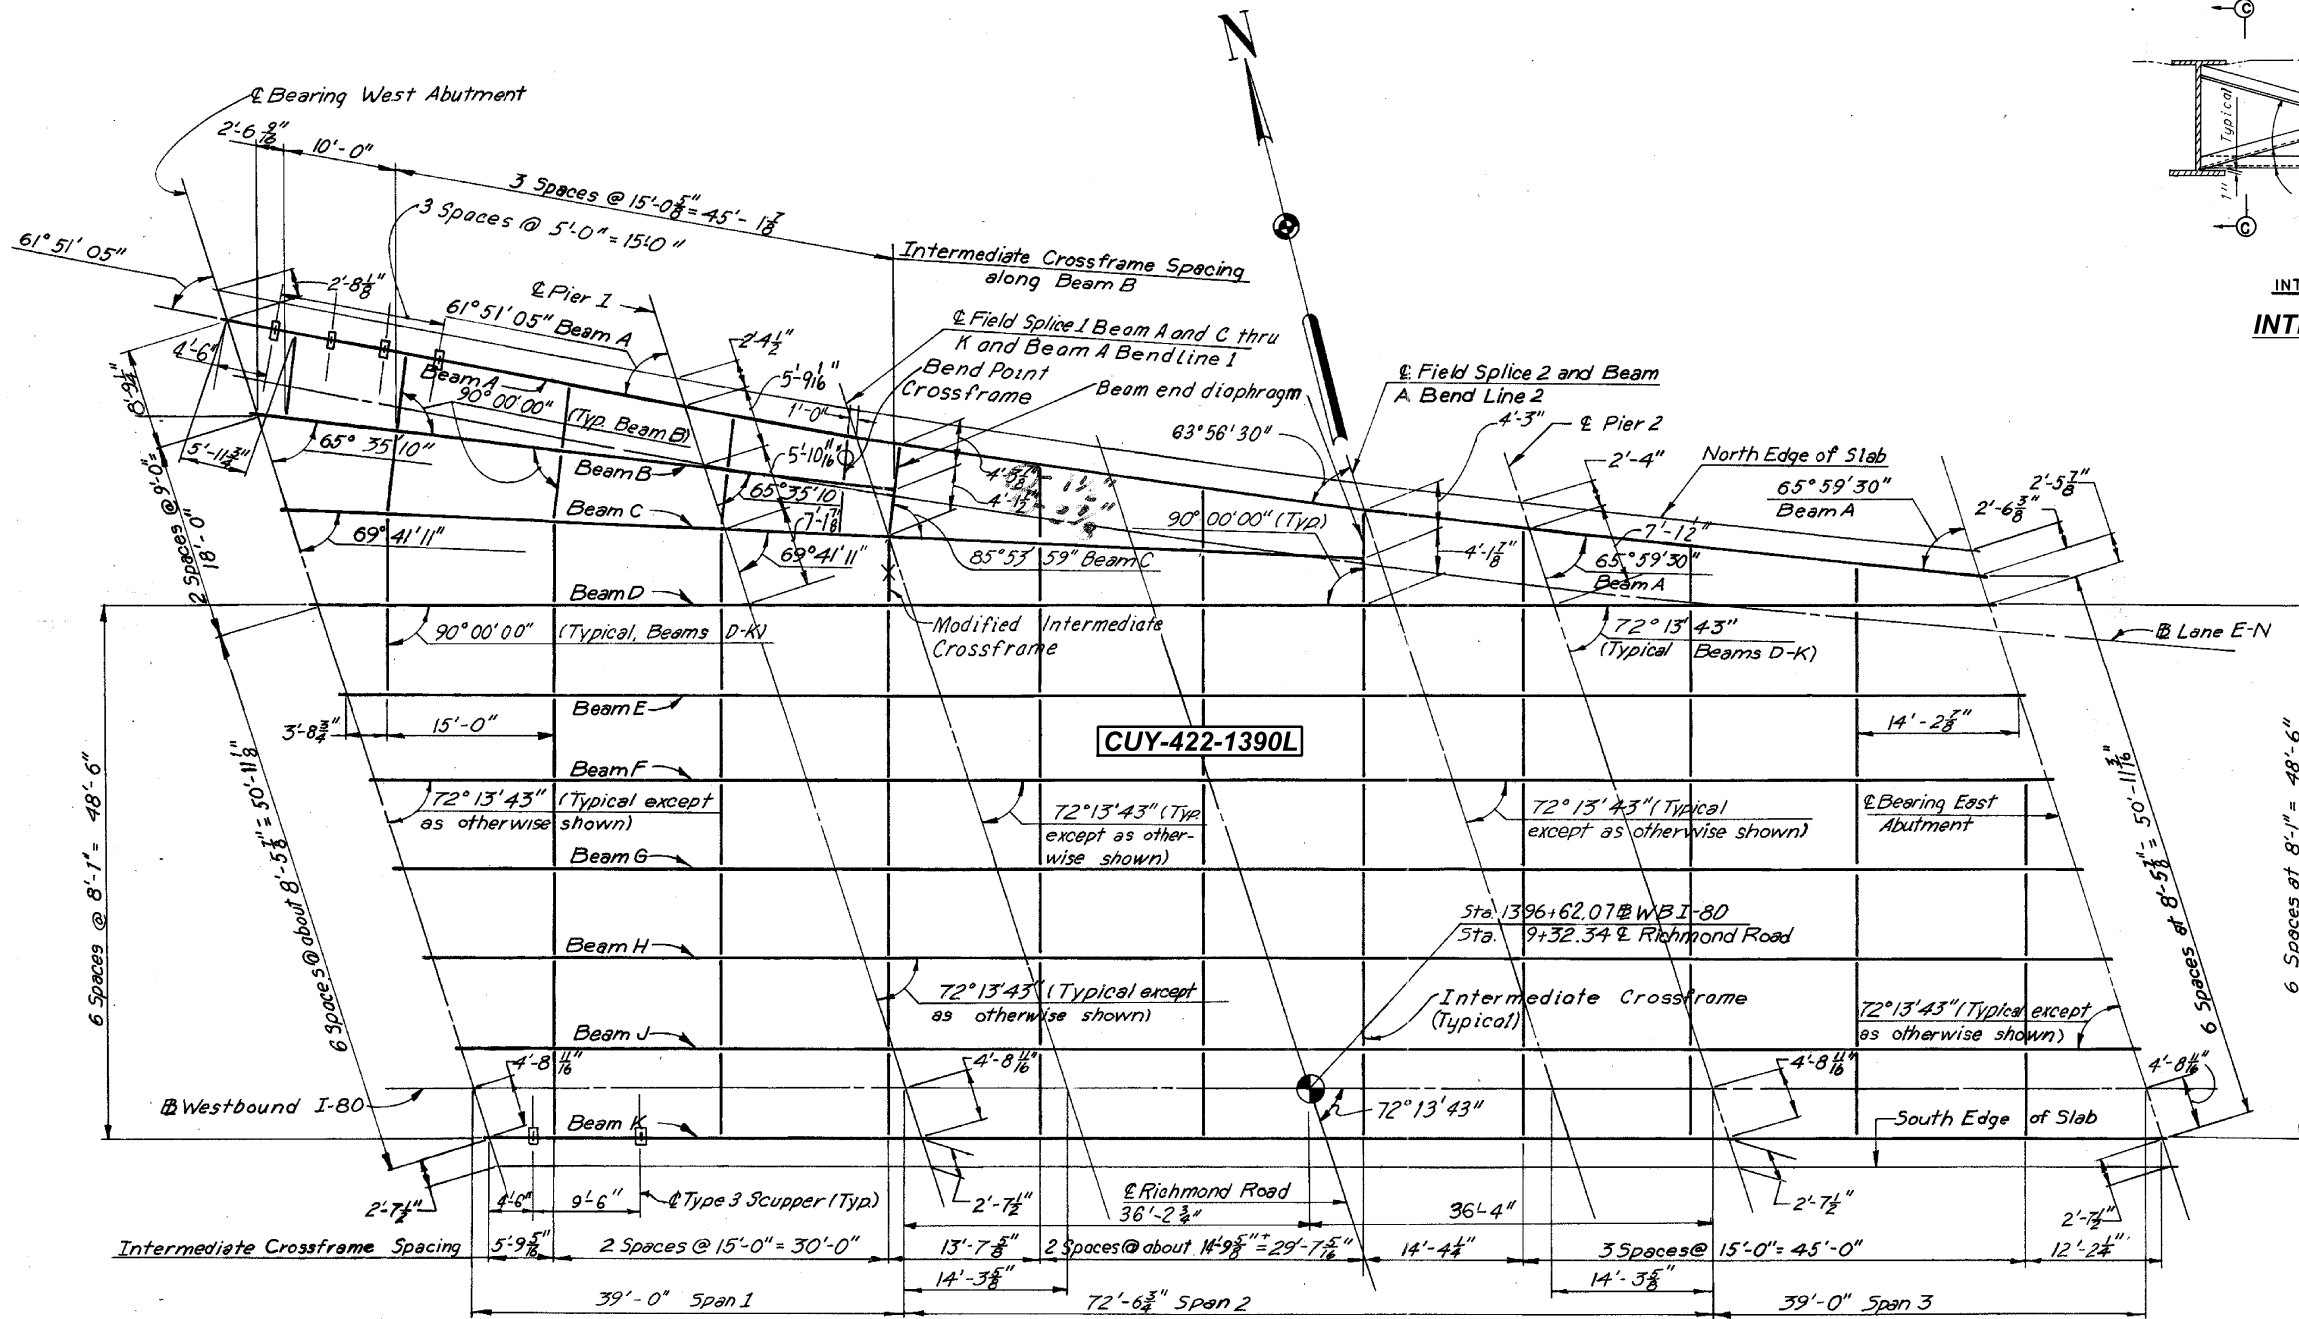 N
C
C
1" Typical
INT
INTE
℄ Bearing West Abutment
2'-6 9/16"
10'-0"
3 Spaces @ 15'-0 5/8" = 45'- 1 7/8
3 Spaces @ 5'-0" = 15'0"
61° 51' 05"
2'-8 1/8"
℄ Pier 1
61° 51' 05" Beam A
Intermediate Crossframe Spacing
along Beam B
℄ Field Splice 1 Beam A and C thru
K and Beam A Bend Line 1
Bend Point
Crossframe
Beam end diaphragm
℄ Field Splice 2 and Beam
A Bend Line 2
4'-3"
℄ Pier 2
2'-4"
North Edge of Slab
65° 59' 30"
Beam A
2'-5 7/8"
2'-6 3/8"
4'-6"
8'-9 1/4"=
Beam A
90° 00' 00"
(Typ. Beam B)
2'-4 1/2"
5'-9 1/16"
1'-0"
5'-10 1/16"
63° 56' 30"
5'-11 3/4"
65° 35' 10"
Beam B
65° 35' 10
7'-1 7/8"
4'-1 1/2"
90° 00' 00" (Typ.)
7'-1 1/2"
4'-1 7/8"
65° 59' 30"
Beam A
Beam C
69° 41' 11"
69° 41' 11
85° 53' 59" Beam C
2 Spaces @ 9'-0"=
18'-0"
Beam D
90° 00' 00" (Typical, Beams D-K)
Modified Intermediate
Crossframe
72° 13' 43"
(Typical Beams D-K)
℔ Lane E-N
Beam E
3'-8 3/4"
15'-0"
14'-2 7/8"
CUY-422-1390L
Beam F
72° 13' 43" (Typical except
as otherwise shown)
72° 13' 43" (Typ.
except as other-
wise shown)
72° 13' 43" (Typical
except as otherwise shown)
℄ Bearing East
Abutment
Beam G
6 Spaces @ 8'-1" = 48'-6"
6 Spaces @ about 8'-5 7/8" = 50'-11 1/8"
6 Spaces at 8'-5 7/8" = 50'-11 3/16"
6 Spaces at 8'-1" = 48'-6"
Sta. 1396+62.07 ℔ WB I-80
Sta. 9+32.34 ℄ Richmond Road
Beam H
72° 13' 43" (Typical except
as otherwise shown)
Intermediate Crossframe
(Typical)
72° 13' 43" (Typical except
as otherwise shown)
Beam J
4'-8 11/16"
4'-8 11/16"
4'-8 11/16"
4'-8 11/16"
℔ Westbound I-80
72° 13' 43"
Beam K
South Edge of Slab
2'-7 1/2"
4'-6"
9'-6"
℄ Type 3 Scupper (Typ.)
2'-7 1/2"
℄ Richmond Road
36'-2 3/4"
36'-4"
2'-7 1/2"
2'-7 1/2"
Intermediate Crossframe Spacing
5'-9 5/16"
2 Spaces @ 15'-0" = 30'-0"
13'-7 5/8"
2 Spaces @ about 14'-9 5/8"± = 29'-7 5/16"
14'-4 1/4"
3 Spaces @ 15'-0" = 45'-0"
12'-2 1/4"
14'-3 5/8"
14'-3 5/8"
39'-0" Span 1
72'-6 3/4" Span 2
39'-0" Span 3